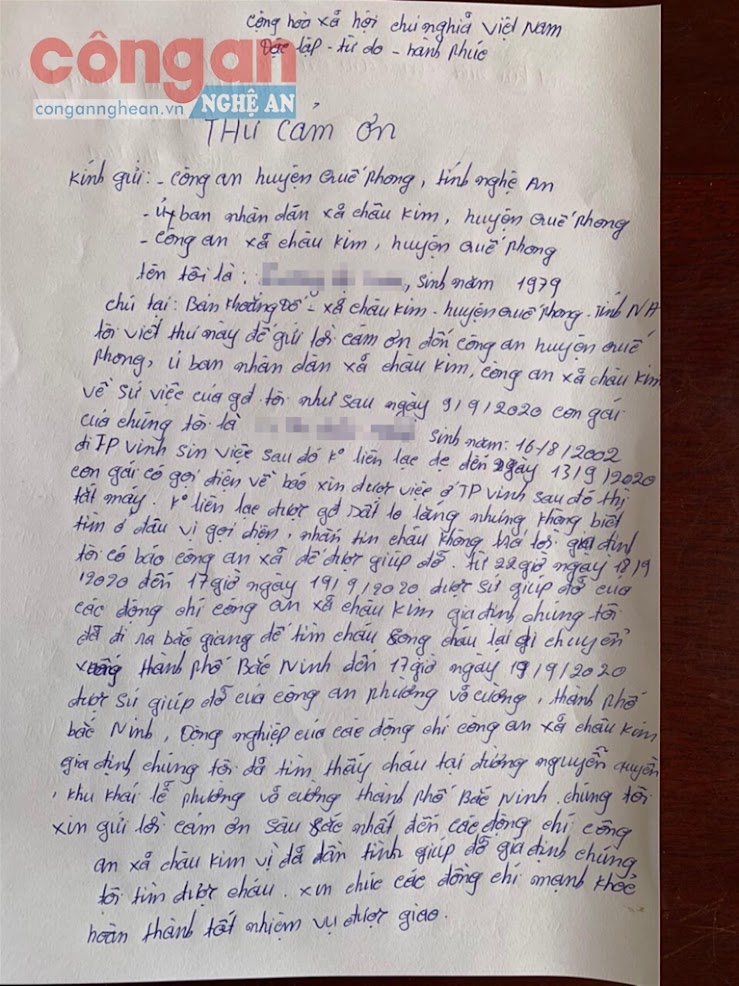 Cộng hòa xã hội chủ nghĩa Việt Nam
Độc lập - tự do - hành phúc
côngan
congannghean.vn NGHỆ AN
THƯ CẢM ƠN
Kính gửi: - Công an huyện Quế Phong, tỉnh nghệ An
- Ủy ban nhân dân xã châu kim, huyện Quế Phong
- Công an xã châu kim, huyện Quế Phong
tên tôi là: , Sinh năm 1979
chú tại: Bản Khoẳng Đố - xã châu kim - huyện Quế phong - Tỉnh NA
tôi viết thư nay để gửi lời cảm ơn đến công an huyện Quế
Phong, ủ ban nhân dân xã châu kim, công an xã châu kim
về sứ việc của gđ tôi như sau ngày 9/9/2020 con gái
của chúng tôi là sinh năm: 16-8/2002
đi TP vinh sin việc sau đó K° liên lạc dẹ đến ngày 13/9/2020
con gái có gọi điện về báo xin được việc ở TP vinh sau đó thị
tắt máy. K° liên lạc được gđ rất lo lăng nhưng không biết
tìm ở đâu vị gọi điện, nhắn tin cháu không trả lời gia đình
tôi có báo công an xã để được giúp đỡ. từ 22 giờ ngày 18/9
/2020 đến 17 giờ ngày 19/9/2020 được sứ giúp đỡ của
các đồng chí công an xã châu kim gia đình chúng tôi
đã đi ra bắc giang để tìm cháu song cháu lại di chuyển
xuống thành phố Bắc Ninh đến 17 giờ ngày 19/9/2020
được sứ giúp đỡ của công an phường võ cường, thành phố
bắc Ninh, Đồng nghiệp của các đồng chí công an xã châu kim
gia đình chúng tôi đã tìm thấy cháu tại đường nguyễn quyền
, khu khái lễ phường võ cường thành phố Bắc Ninh. chúng tôi
xin gửi lời cảm ơn sâu sắc nhất đến các đồng chí công
an xã châu kim vị đã dần tình giúp đỡ gia đình chúng
tôi tìm được cháu. xin chúc các đồng chí mạnh khỏe
hoàn thành tốt nhiệm vụ được giao.